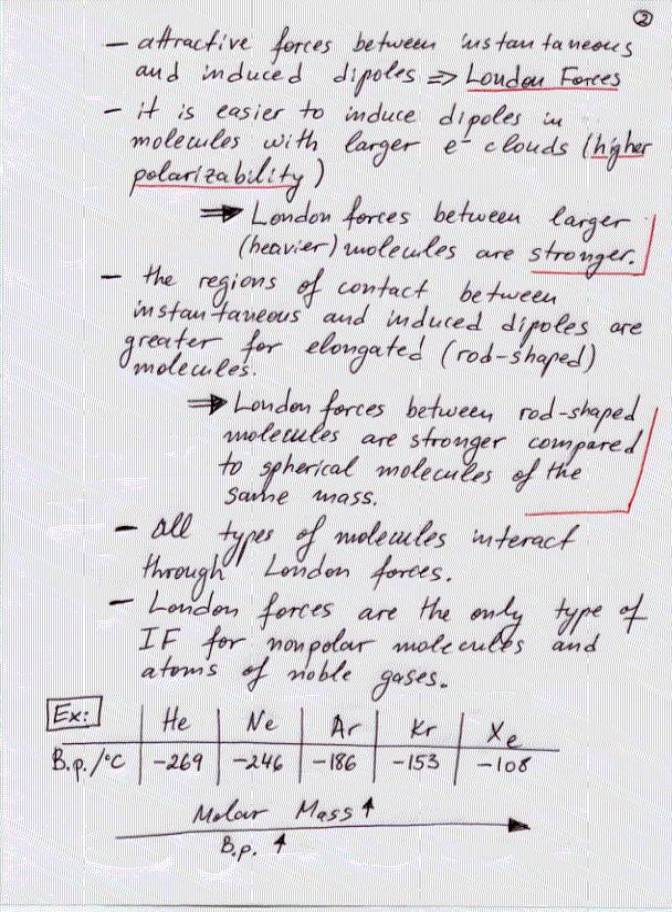 ②
– attractive forces between instantaneous
and induced dipoles ⇒ London Forces
– it is easier to induce dipoles in
molecules with larger e⁻ clouds (higher
polarizability)
⇒ London forces between larger
(heavier) molecules are stronger.
– the regions of contact between
instantaneous and induced dipoles are
greater for elongated (rod-shaped)
molecules.
⇒ London forces between rod-shaped
molecules are stronger compared
to spherical molecules of the
same mass.
– all types of molecules interact
through London forces.
– London forces are the only type of
IF for nonpolar molecules and
atoms of noble gases.
Ex: He Ne Ar Kr Xe
B.p./°C -269 -246 -186 -153 -108
Molar Mass ↑
B.p. ↑